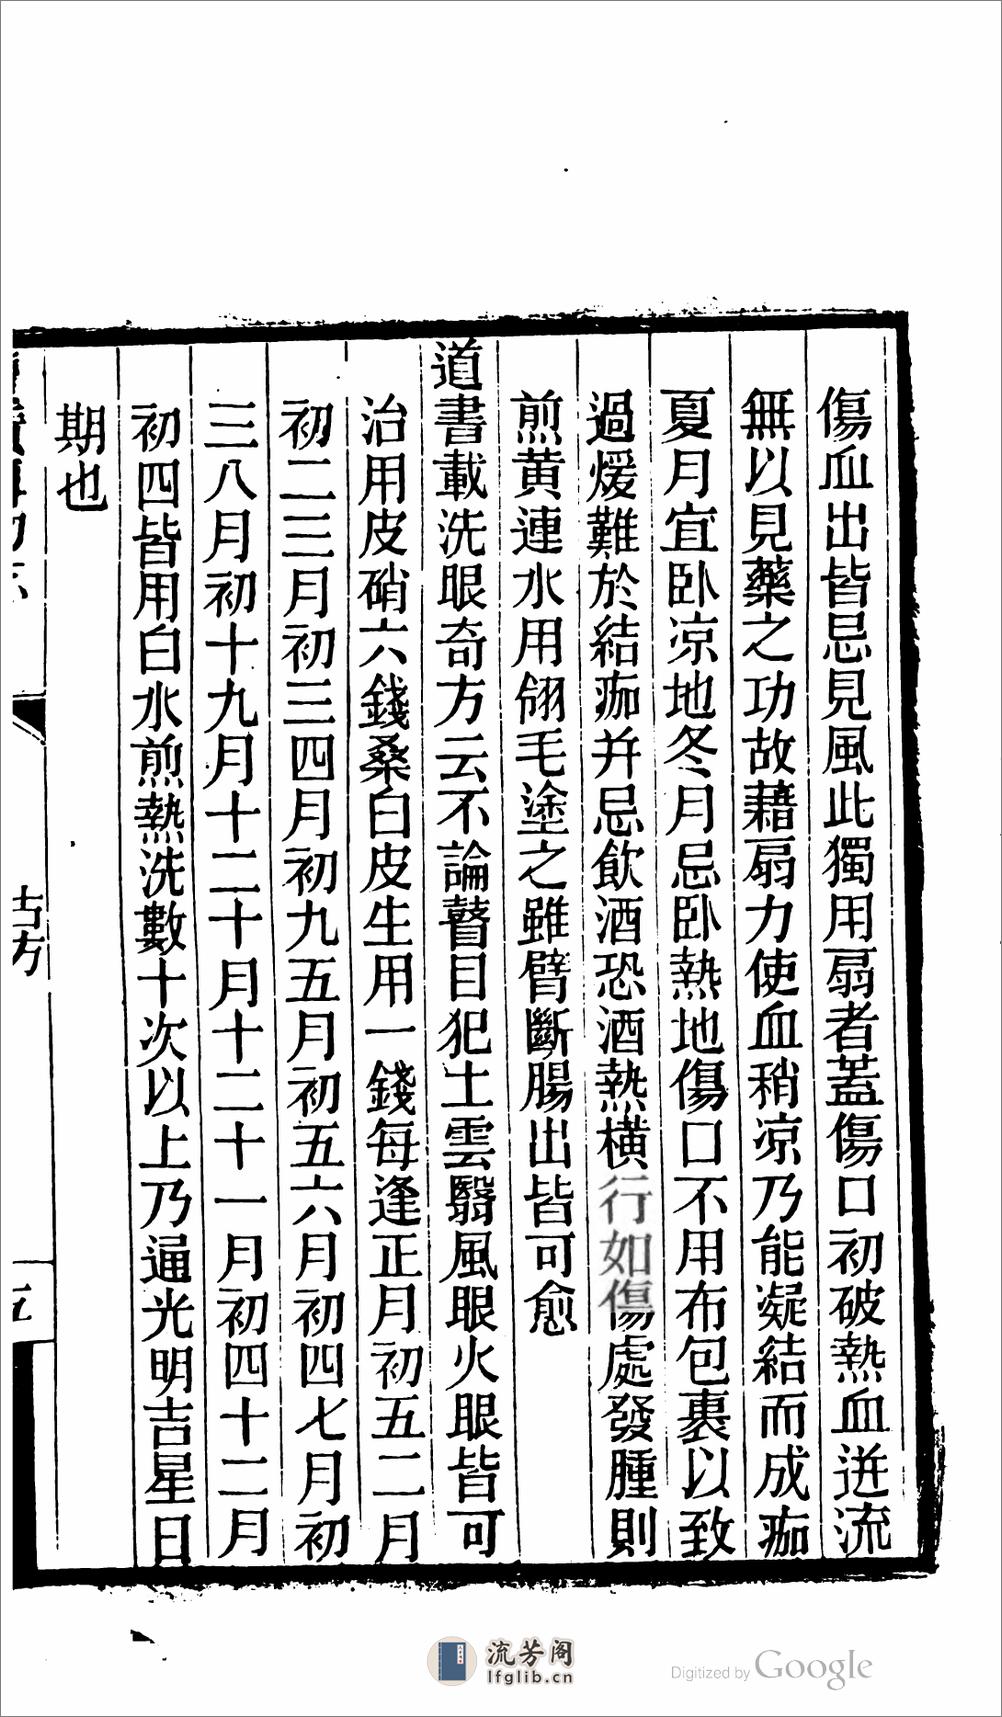 傷血出皆忌見風此獨用扇者蓋傷口初破熱血迸流
無以見藥之功故藉扇力使血稍凉乃能凝結而成痂
夏月宜卧凉地冬月忌卧熱地傷口不用布包裹以致
過煖難於結痂并忌飲酒恐酒熱橫行如傷處發腫則
煎黄連水用翎毛塗之雖臂斷腸出皆可愈
道書載洗眼奇方云不論瞽目犯土雲翳風眼火眼皆可
治用皮硝六錢桑白皮生用一錢每逢正月初五二月
初二三月初三四月初九五月初五六月初四七月初
三八月初十九月十二十月十二十一月初四十二月
初四皆用白水煎熱洗數十次以上乃通光明吉星日
期也
流芳阁
lfglib.cn
Digitized by Google